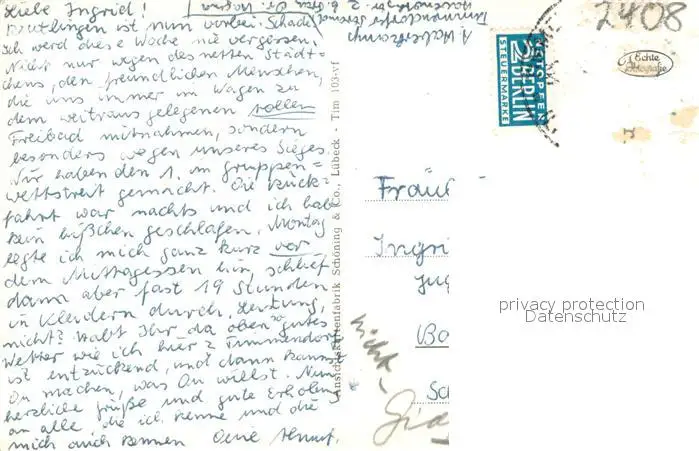 Liebe Ingrid!
Reutlingen ist nun vorbei. Schade!
Ich werd diese Woche nie vergessen.
Nicht nur wegen des netten Städt-
chens, den freundlichen Menschen,
die uns immer im Wagen zu
dem weitraus gelegenen vollen
Freibad mitnahmen, sondern
besonders wegen unseres Sieges.
Wir haben den 1. im Gruppen=
wettstreit gemacht. Die Rück=
fahrt war nachts und ich habe
kein bißchen geschlafen. Montag
legte ich mich ganz kurz vor
dem Mittagessen hin, schlief
dann aber fast 19 Stunden
in Kleidern durch. Leistung,
nicht? Habt Ihr da oben so gutes
Wetter wie ich hier? Timmendorf
ist entzückend, und dann kannst
Du machen, was Du willst. Nun
herzliche Grüße und gute Erholung
an alle, die ich kenne und die
mich auch kennen Deine
Ansichtskartenfabrik Schöning & Co., Lübeck - Tim 103 vf
A.
Timmendorfer Strand
2408
NOTOPFER
2 BERLIN
STEUERMARKE
Echte
Fotografie
Fräul
Ingri
Jug
Ba
Sc
nicht
privacy protection
Datenschutz